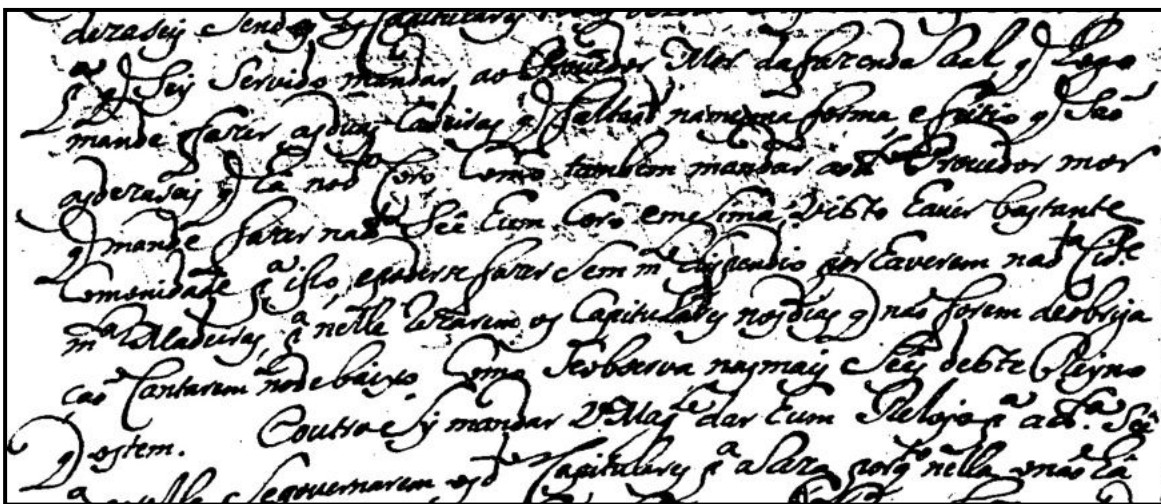 dezaseis sendo os Capitulares
P.ª q̃ seja servido mandar ao Provedor Mor da fazenda Real q̃ Logo
mande fazer as duas Cadeiras q̃ faltaõ na mesma forma e feitio q̃ saõ
as dezaseis q̃ há no d.º Coro Como tambem mandar ao d.º Provedor mor
q̃ mande fazer na d.ª Sêe hum Coro emsima, visto haver bastante
Comonidade p.ª isso, e poderse fazer sem m.to dispendio por haverem na d.ª Cid.e
m.tas Madeiras, p.ª nelle rezarem os Capitulares nos dias q̃ naõ forem de obriga
caõ Cantarem no de baixo, Como se observa nas mais Sées deste Reyno
q̃ o tem. E outro sy mandar V. Mag.e dar hum Relojo p.ª a d.ª Sêe
P.ª se governarem os d.os Capitulares p.ª a reza porq̃ nella naõ há